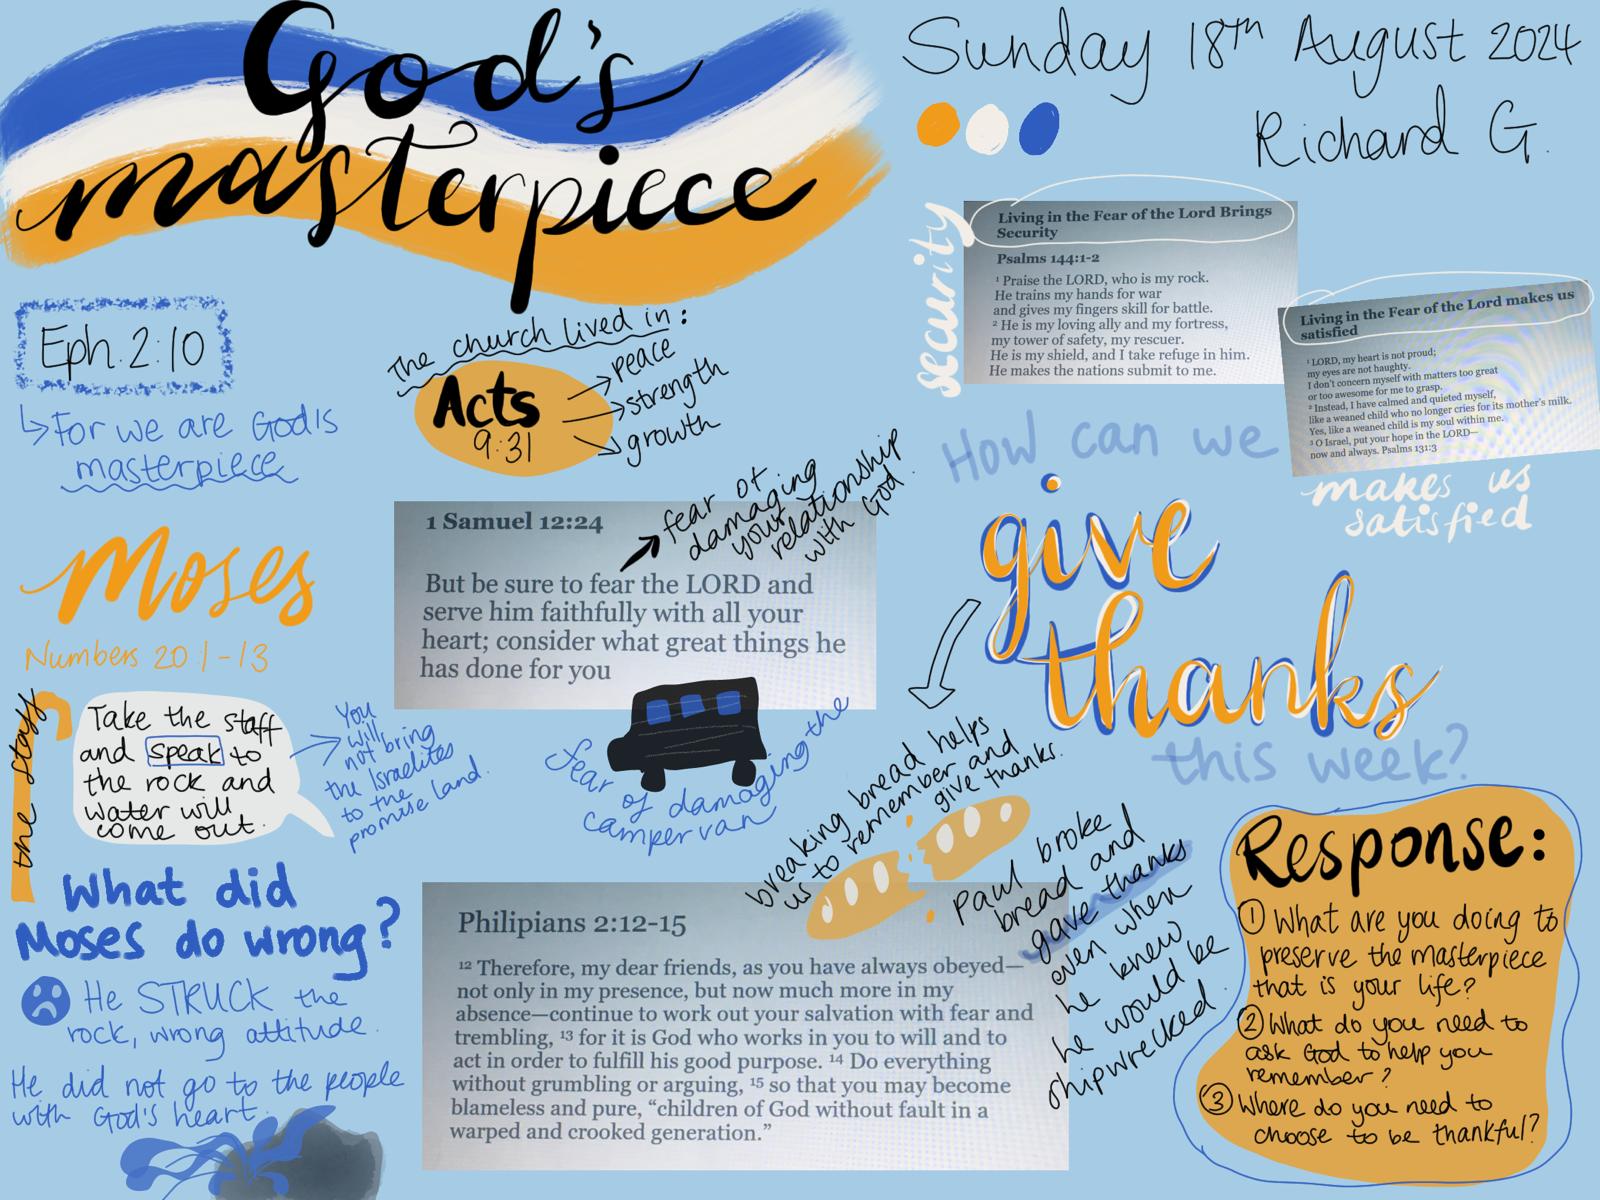 God's
masterpiece
Sunday 18th August 2024
Richard G.
Eph. 2:10
For we are God's
masterpiece
The church lived in:
Acts
9:31
peace
strength
growth
security
Living in the Fear of the Lord Brings
Security
Psalms 144:1-2
1 Praise the LORD, who is my rock.
He trains my hands for war
and gives my fingers skill for battle.
2 He is my loving ally and my fortress,
my tower of safety, my rescuer.
He is my shield, and I take refuge in him.
He makes the nations submit to me.
Living in the Fear of the Lord makes us
satisfied
1 LORD, my heart is not proud;
my eyes are not haughty.
I don't concern myself with matters too great
or too awesome for me to grasp.
2 Instead, I have calmed and quieted myself,
like a weaned child who no longer cries for its mother's milk.
Yes, like a weaned child is my soul within me.
3 O Israel, put your hope in the LORD—
now and always. Psalms 131:3
makes us
satisfied
Moses
Numbers 20:1-13
the staff
Take the staff
and speak to
the rock and
water will
come out.
You
will
not bring
the Israelites
to the
promise land.
What did
Moses do wrong?
He STRUCK the
rock, wrong attitude.
He did not go to the people
with God's heart.
1 Samuel 12:24
But be sure to fear the LORD and
serve him faithfully with all your
heart; consider what great things he
has done for you
fear of
damaging
your
relationship
with God.
fear of damaging the
campervan
How can we
give
thanks
this week?
breaking bread helps
us to remember and
give thanks.
Paul broke
bread and
gave thanks
even when
he knew
he would be
shipwrecked.
Philipians 2:12-15
12 Therefore, my dear friends, as you have always obeyed—
not only in my presence, but now much more in my
absence—continue to work out your salvation with fear and
trembling, 13 for it is God who works in you to will and to
act in order to fulfill his good purpose. 14 Do everything
without grumbling or arguing, 15 so that you may become
blameless and pure, "children of God without fault in a
warped and crooked generation."
Response:
1 What are you doing to
preserve the masterpiece
that is your life?
2 What do you need to
ask God to help you
remember?
3 Where do you need to
choose to be thankful?